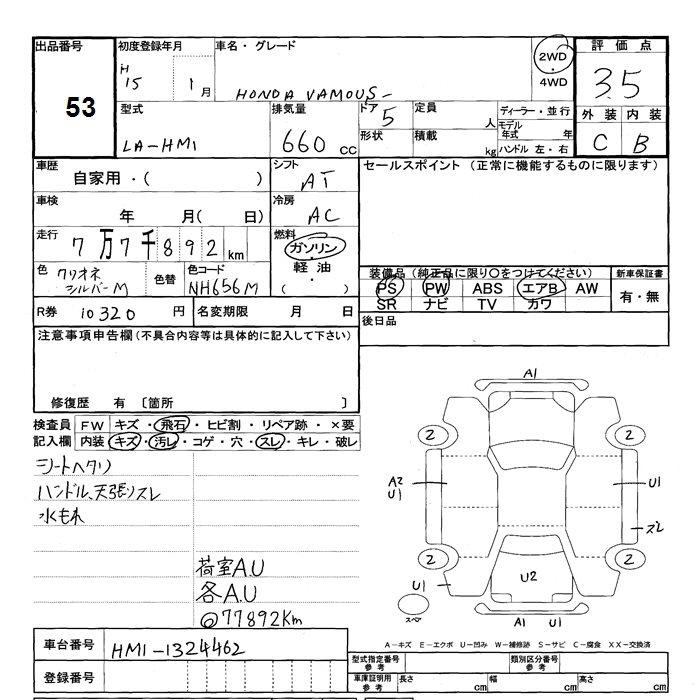 出品番号 53
初度登録年月 H 15 1 月
車名・グレード HONDA VAMOUS-
2WD ・ 4WD
評価点 3.5
外装 内装
C B
型式 LA-HM1
排気量 660 cc
ドア 5
形状
定員 人
積載 kg
ディーラー・並行
モデル年式 年
ハンドル 左・右
車歴 自家用・( )
シフト AT
セールスポイント (正常に機能するものに限ります)
車検 年 月( 日)
冷房 AC
走行 7万7千892 km
燃料 ガソリン ・ 軽油 ( )
色 クリオネシルバーM
色替
色コード NH656M
装備品 (純正品に限り○をつけてください)
PS PW ABS エアB AW
SR ナビ TV カワ
新車保証書 有・無
R券 10320 円
名変期限 月 日
後日品
注意事項申告欄(不具合内容等は具体的に記入して下さい)
修復歴 有 〔箇所 〕
検査員記入欄
FW キズ・飛石・ヒビ割・リペア跡・×要
内装 キズ・汚レ・コゲ・穴・スレ・キレ・破レ
シートヘタリ
ハンドル、天張りスレ
水もれ
荷室A.U
各A.U
@77892Km
A1
2 2
A2 U1
U1
スレ
2 2
U1
U2
スペア
A1 U1
A-キズ E-エクボ U-凹み W-補修跡 S-サビ C-腐食 XX-交換済
車台番号 HM1-1324462
登録番号
型式指定番号 参考
類別区分番号 参考
車庫証明用 参考 長さ cm 幅 cm 高さ cm